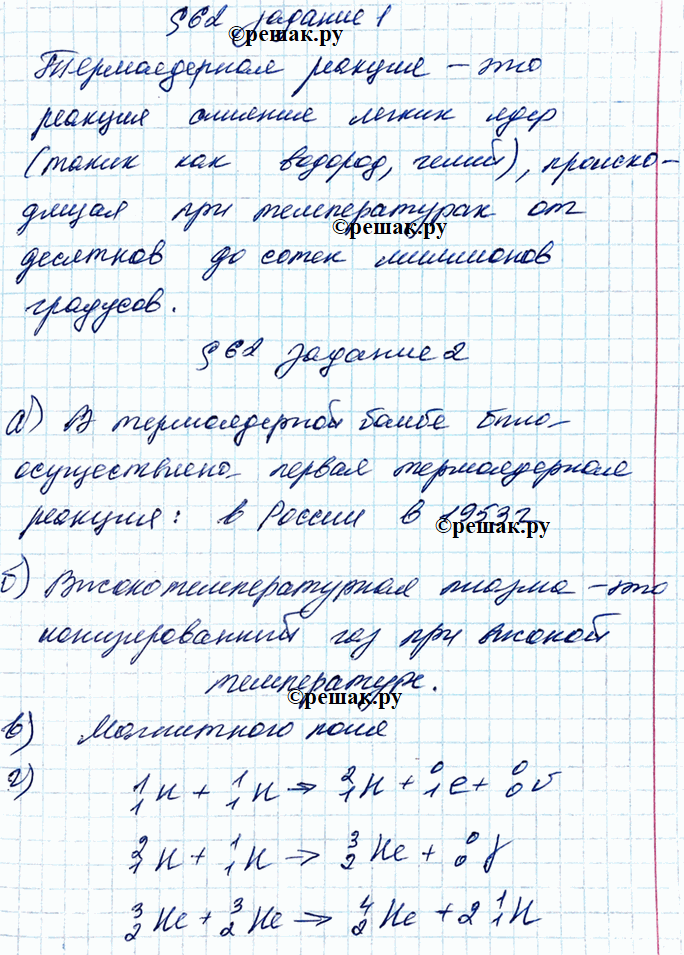 §62 задание 1
©решак.ру
Термоядерная реакция – это
реакция слияния легких ядер
(таких как водород, гелий), происхо-
дящая при температурах от
©решак.ру
десятков до сотен миллионов
градусов.
§62 задание 2
а) В термоядерной бомбе было
осуществлено первая термоядерная
реакция: в России в 1953г.
©решак.ру
б) Высокотемпературная плазма – это
ионизированный газ при высокой
температуре.
©решак.ру
в) Магнитного поля
г) ¹₁H + ¹₁H → ²₁H + ⁰₁e + ⁰₀ν
²₁H + ¹₁H → ³₂He + ⁰₀γ
³₂He + ³₂He → ⁴₂He + 2 ¹₁H